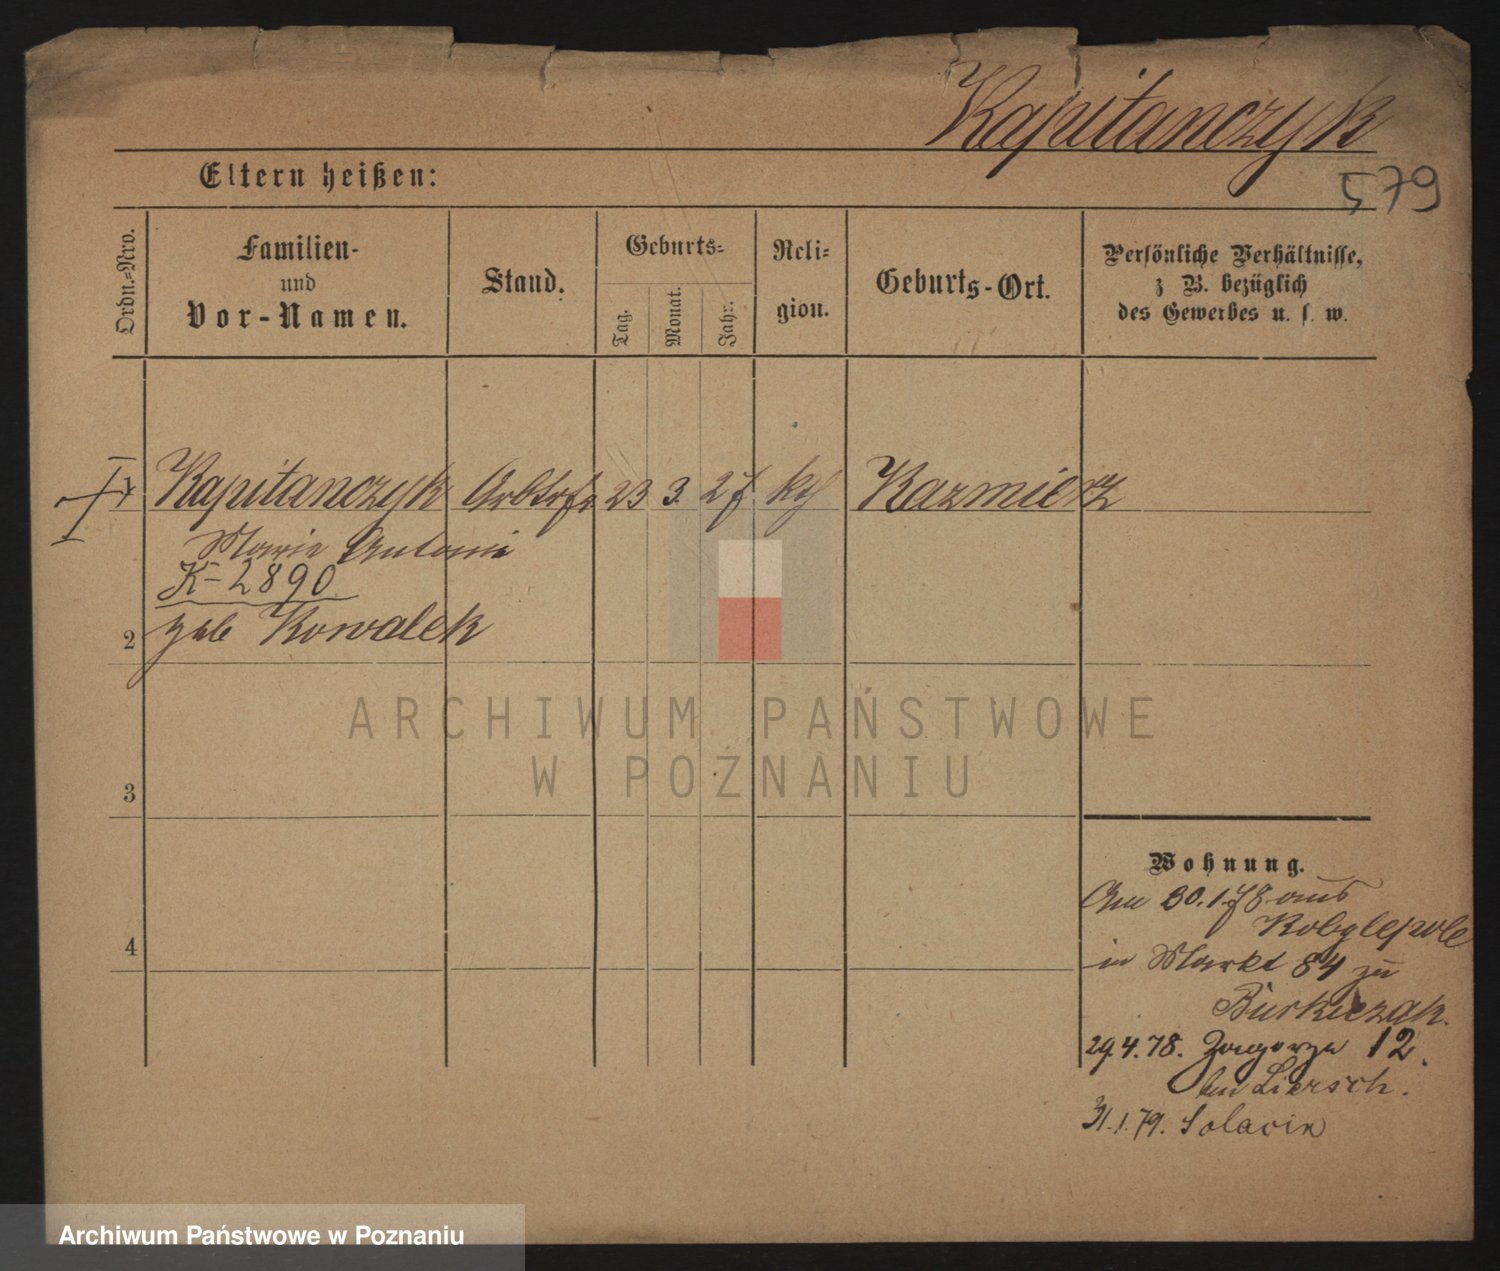 Kapitanczyk
Eltern heißen:
579
Ordn.=Nro.
Familien-
und
Vor-Namen.
Stand.
Geburts=
Tag.
Monat.
Jahr.
Reli=
gion.
Geburts-Ort.
Persönliche Verhältnisse,
z B. bezüglich
des Gewerbes u. s. w.
1 Kapitanczyk Arbtrfr 23 3. 27 kth Kazmierz
Marie Antonie
K-2890
2 geb Kowalek
ARCHIWUM PAŃSTWOWE
W POZNANIU
3
Wohnung.
Am 30.1.78 aus
Kobylepole
4
in Markt 84 zu
29.4.78. Zagorze 12.
bei Liersch.
31.1.79. Solacin
Archiwum Państwowe w Poznaniu